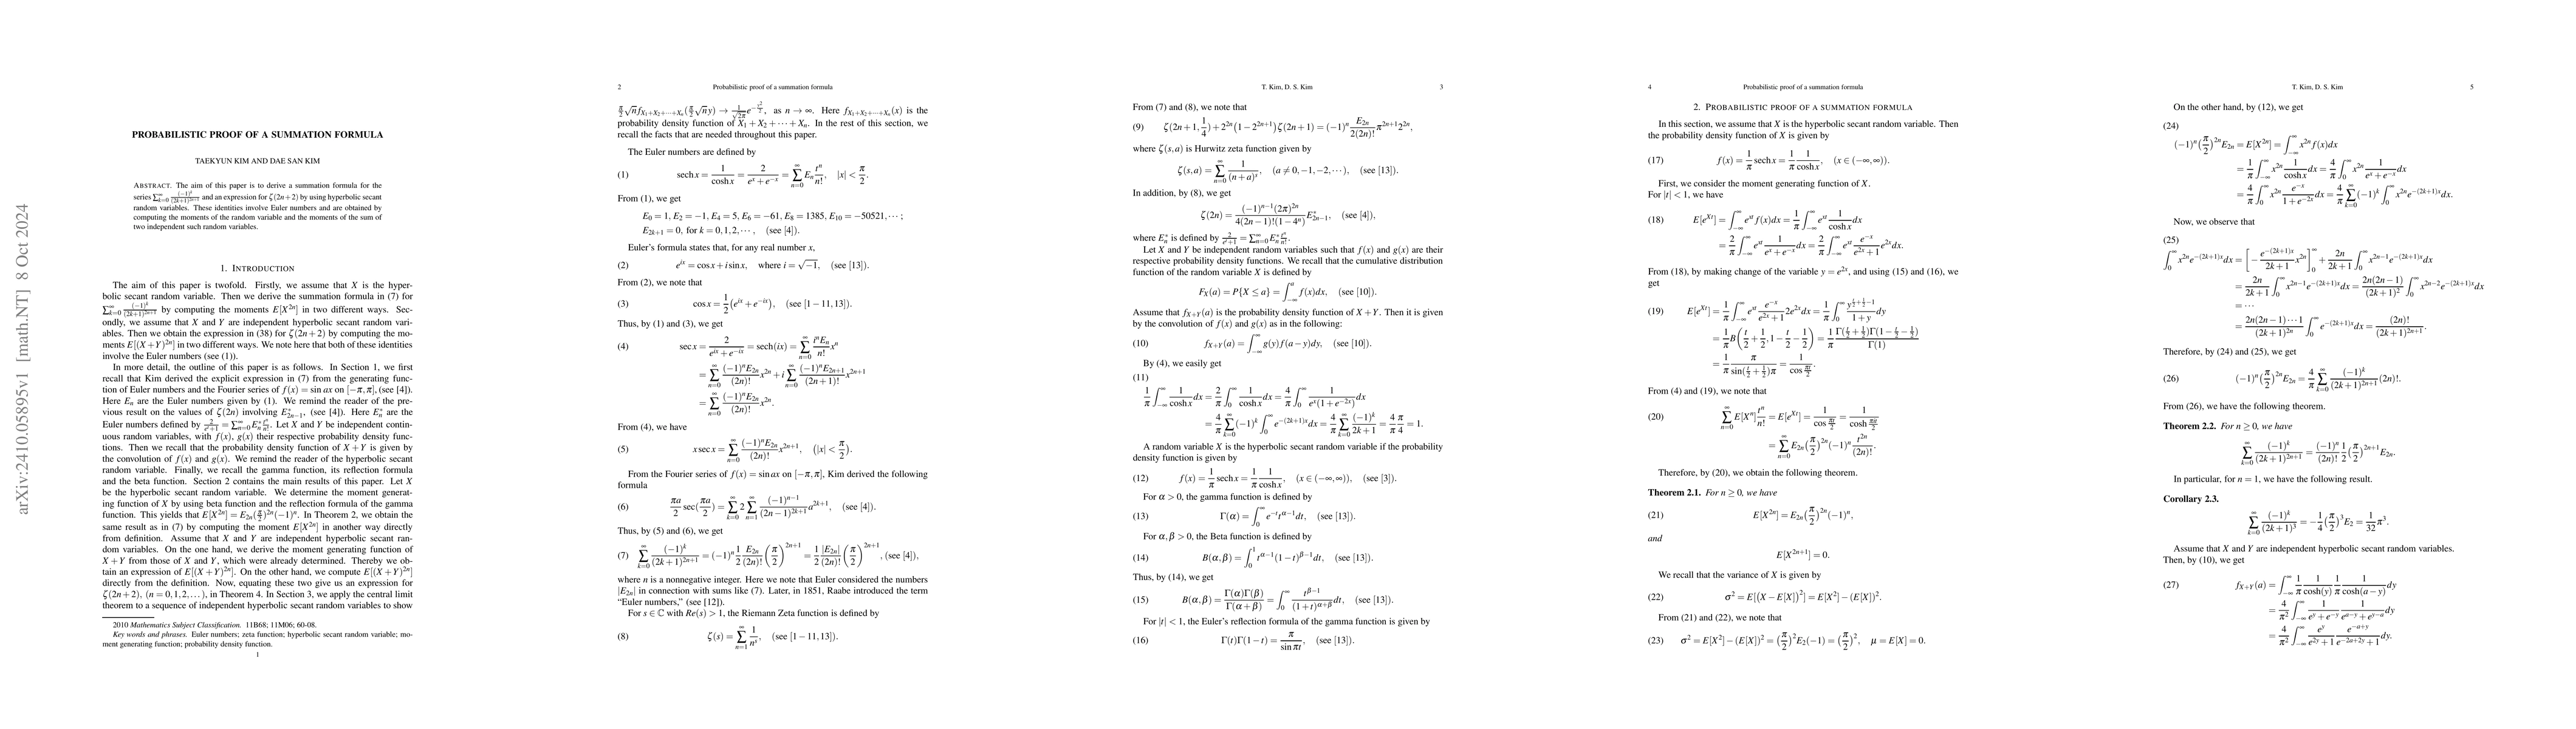 arXiv:2410.05895v1 [math.NT] 8 Oct 2024
PROBABILISTIC PROOF OF A SUMMATION FORMULA
TAEKYUN KIM AND DAE SAN KIM
ABSTRACT. The aim of this paper is to derive a summation formula for the
series \sum_{k=0}^{\infty} \frac{(-1)^k}{(2k+1)^{2n+1}} and an expression for ζ(2n+2) by using hyperbolic secant
random variables. These identities involve Euler numbers and are obtained by
computing the moments of the random variable and the moments of the sum of
two independent such random variables.
1. INTRODUCTION
The aim of this paper is twofold. Firstly, we assume that X is the hyper-
bolic secant random variable. Then we derive the summation formula in (7) for
\sum_{k=0}^{\infty} \frac{(-1)^k}{(2k+1)^{2n+1}} by computing the moments E[X^{2n}] in two different ways. Sec-
ondly, we assume that X and Y are independent hyperbolic secant random vari-
ables. Then we obtain the expression in (38) for ζ(2n+2) by computing the mo-
ments E[(X+Y)^{2n}] in two different ways. We note here that both of these identities
involve the Euler numbers (see (1)).
In more detail, the outline of this paper is as follows. In Section 1, we first
recall that Kim derived the explicit expression in (7) from the generating func-
tion of Euler numbers and the Fourier series of f(x) = sin ax on [-π,π], (see [4]).
Here E_n are the Euler numbers given by (1). We remind the reader of the pre-
vious result on the values of ζ(2n) involving E^*_{2n-1}, (see [4]). Here E^*_n are the
Euler numbers defined by \frac{2}{e^t+1} = \sum_{n=0}^{\infty} E^*_n \frac{t^n}{n!}. Let X and Y be independent contin-
uous random variables, with f(x), g(x) their respective probability density func-
tions. Then we recall that the probability density function of X+Y is given by
the convolution of f(x) and g(x). We remind the reader of the hyperbolic secant
random variable. Finally, we recall the gamma function, its reflection formula
and the beta function. Section 2 contains the main results of this paper. Let X
be the hyperbolic secant random variable. We determine the moment generat-
ing function of X by using beta function and the reflection formula of the gamma
function. This yields that E[X^{2n}] = E_{2n}(\frac{π}{2})^{2n}(-1)^n. In Theorem 2, we obtain the
same result as in (7) by computing the moment E[X^{2n}] in another way directly
from definition. Assume that X and Y are independent hyperbolic secant ran-
dom variables. On the one hand, we derive the moment generating function of
X+Y from those of X and Y, which were already determined. Thereby we ob-
tain an expression of E[(X+Y)^{2n}]. On the other hand, we compute E[(X+Y)^{2n}]
directly from the definition. Now, equating these two give us an expression for
ζ(2n+2), (n = 0,1,2,...), in Theorem 4. In Section 3, we apply the central limit
theorem to a sequence of independent hyperbolic secant random variables to show
2010 Mathematics Subject Classification. 11B68; 11M06; 60-08.
Key words and phrases. Euler numbers; zeta function; hyperbolic secant random variable; mo-
ment generating function; probability density function.
1
2 Probabilistic proof of a summation formula
\frac{π}{2}\sqrt{n} f_{X_1+X_2+⋯+X_n}(\frac{π}{2}\sqrt{n}y) → \frac{1}{\sqrt{2π}} e^{-\frac{y^2}{2}}, as n → ∞. Here f_{X_1+X_2+⋯+X_n}(x) is the
probability density function of X_1+X_2+⋯+X_n. In the rest of this section, we
recall the facts that are needed throughout this paper.
The Euler numbers are defined by
(1) sech x = \frac{1}{\cosh x} = \frac{2}{e^x+e^{-x}} = \sum_{n=0}^{\infty} E_n \frac{t^n}{n!}, |x| < \frac{π}{2}.
From (1), we get
E_0 = 1, E_2 = -1, E_4 = 5, E_6 = -61, E_8 = 1385, E_{10} = -50521, ⋯ ;
E_{2k+1} = 0, for k = 0,1,2,⋯, (see [4]).
Euler's formula states that, for any real number x,
(2) e^{ix} = cos x + i sin x, where i = \sqrt{-1}, (see [13]).
From (2), we note that
(3) cos x = \frac{1}{2}(e^{ix}+e^{-ix}), (see [1-11,13]).
Thus, by (1) and (3), we get
(4) sec x = \frac{2}{e^{ix}+e^{-ix}} = sech(ix) = \sum_{n=0}^{\infty} \frac{i^n E_n}{n!} x^n
= \sum_{n=0}^{\infty} \frac{(-1)^n E_{2n}}{(2n)!} x^{2n} + i \sum_{n=0}^{\infty} \frac{(-1)^n E_{2n+1}}{(2n+1)!} x^{2n+1}
= \sum_{n=0}^{\infty} \frac{(-1)^n E_{2n}}{(2n)!} x^{2n}.
From (4), we have
(5) x sec x = \sum_{n=0}^{\infty} \frac{(-1)^n E_{2n}}{(2n)!} x^{2n+1}, (|x| < \frac{π}{2}).
From the Fourier series of f(x) = sin ax on [-π,π], Kim derived the following
formula
(6) \frac{πa}{2} sec(\frac{πa}{2}) = \sum_{k=0}^{\infty} 2 \sum_{n=1}^{\infty} \frac{(-1)^{n-1}}{(2n-1)^{2k+1}} a^{2k+1}, (see [4]).
Thus, by (5) and (6), we get
(7) \sum_{k=0}^{\infty} \frac{(-1)^k}{(2k+1)^{2n+1}} = (-1)^n \frac{1}{2} \frac{E_{2n}}{(2n)!} (\frac{π}{2})^{2n+1} = \frac{1}{2} \frac{|E_{2n}|}{(2n)!} (\frac{π}{2})^{2n+1}, (see [4]),
where n is a nonnegative integer. Here we note that Euler considered the numbers
|E_{2n}| in connection with sums like (7). Later, in 1851, Raabe introduced the term
“Euler numbers,” (see [12]).
For s ∈ ℂ with Re(s) > 1, the Riemann Zeta function is defined by
(8) ζ(s) = \sum_{n=1}^{\infty} \frac{1}{n^s}, (see [1-11,13]).
T. Kim, D. S. Kim 3
From (7) and (8), we note that
(9) ζ(2n+1, \frac{1}{4}) + 2^{2n}(1-2^{2n+1})ζ(2n+1) = (-1)^n \frac{E_{2n}}{2(2n)!} π^{2n+1} 2^{2n},
where ζ(s,a) is Hurwitz zeta function given by
ζ(s,a) = \sum_{n=0}^{\infty} \frac{1}{(n+a)^s}, (a ≠ 0,-1,-2,⋯), (see [13]).
In addition, by (8), we get
ζ(2n) = \frac{(-1)^{n-1}(2π)^{2n}}{4(2n-1)!(1-4^n)} E^*_{2n-1}, (see [4]),
where E^*_n is defined by \frac{2}{e^t+1} = \sum_{n=0}^{\infty} E^*_n \frac{t^n}{n!}.
Let X and Y be independent random variables such that f(x) and g(x) are their
respective probability density functions. We recall that the cumulative distribution
function of the random variable X is defined by
F_X(a) = P{X ≤ a} = \int_{-∞}^{a} f(x)dx, (see [10]).
Assume that f_{X+Y}(a) is the probability density function of X+Y. Then it is given
by the convolution of f(x) and g(x) as in the following:
(10) f_{X+Y}(a) = \int_{-∞}^{∞} g(y)f(a-y)dy, (see [10]).
By (4), we easily get
(11)
\frac{1}{π} \int_{-∞}^{∞} \frac{1}{\cosh x} dx = \frac{2}{π} \int_0^{∞} \frac{1}{\cosh x} dx = \frac{4}{π} \int_0^{∞} \frac{1}{e^x(1+e^{-2x})} dx
= \frac{4}{π} \sum_{k=0}^{∞} (-1)^k \int_0^{∞} e^{-(2k+1)x} dx = \frac{4}{π} \sum_{k=0}^{∞} \frac{(-1)^k}{2k+1} = \frac{4}{π} \frac{π}{4} = 1.
A random variable X is the hyperbolic secant random variable if the probability
density function is given by
(12) f(x) = \frac{1}{π} sech x = \frac{1}{π} \frac{1}{\cosh x}, (x ∈ (-∞,∞)), (see [3]).
For α > 0, the gamma function is defined by
(13) Γ(α) = \int_0^{∞} e^{-t} t^{α-1} dt, (see [13]).
For α, β > 0, the Beta function is defined by
(14) B(α,β) = \int_0^1 t^{α-1}(1-t)^{β-1} dt, (see [13]).
Thus, by (14), we get
(15) B(α,β) = \frac{Γ(α)Γ(β)}{Γ(α+β)} = \int_0^{∞} \frac{t^{β-1}}{(1+t)^{α+β}} dt, (see [13]).
For |t| < 1, the Euler's reflection formula of the gamma function is given by
(16) Γ(t)Γ(1-t) = \frac{π}{\sin πt}, (see [13]).
4 Probabilistic proof of a summation formula
2. PROBABILISTIC PROOF OF A SUMMATION FORMULA
In this section, we assume that X is the hyperbolic secant random variable. Then
the probability density function of X is given by
(17) f(x) = \frac{1}{π} sech x = \frac{1}{π} \frac{1}{\cosh x}, (x ∈ (-∞,∞)).
First, we consider the moment generating function of X.
For |t| < 1, we have
(18) E[e^{Xt}] = \int_{-∞}^{∞} e^{xt} f(x)dx = \frac{1}{π} \int_{-∞}^{∞} e^{xt} \frac{1}{\cosh x} dx
= \frac{2}{π} \int_{-∞}^{∞} e^{xt} \frac{1}{e^x+e^{-x}} dx = \frac{2}{π} \int_{-∞}^{∞} e^{xt} \frac{e^{-x}}{e^{2x}+1} e^{2x} dx.
From (18), by making change of the variable y = e^{2x}, and using (15) and (16), we
get
(19) E[e^{Xt}] = \frac{1}{π} \int_{-∞}^{∞} e^{xt} \frac{e^{-x}}{e^{2x}+1} 2e^{2x} dx = \frac{1}{π} \int_0^{∞} \frac{y^{\frac{t}{2}+\frac{1}{2}-1}}{1+y} dy
= \frac{1}{π} B(\frac{t}{2}+\frac{1}{2}, 1-\frac{t}{2}-\frac{1}{2}) = \frac{1}{π} \frac{Γ(\frac{t}{2}+\frac{1}{2})Γ(1-\frac{t}{2}-\frac{1}{2})}{Γ(1)}
= \frac{1}{π} \frac{π}{\sin(\frac{t}{2}+\frac{1}{2})π} = \frac{1}{\cos \frac{πt}{2}}.
From (4) and (19), we note that
(20) \sum_{n=0}^{∞} E[X^n] \frac{t^n}{n!} = E[e^{Xt}] = \frac{1}{\cos \frac{πt}{2}} = \frac{1}{\cosh \frac{πit}{2}}
= \sum_{n=0}^{∞} E_{2n}(\frac{π}{2})^{2n}(-1)^n \frac{t^{2n}}{(2n)!}.
Therefore, by (20), we obtain the following theorem.
Theorem 2.1. For n ≥ 0, we have
(21) E[X^{2n}] = E_{2n}(\frac{π}{2})^{2n}(-1)^n,
and
E[X^{2n+1}] = 0.
We recall that the variance of X is given by
(22) σ^2 = E[(X-E[X])^2] = E[X^2] - (E[X])^2.
From (21) and (22), we note that
(23) σ^2 = E[X^2] - (E[X])^2 = (\frac{π}{2})^2 E_2(-1) = (\frac{π}{2})^2, μ = E[X] = 0.
T. Kim, D. S. Kim 5
On the other hand, by (12), we get
(24)
(-1)^n (\frac{π}{2})^{2n} E_{2n} = E[X^{2n}] = \int_{-∞}^{∞} x^{2n} f(x)dx
= \frac{1}{π} \int_{-∞}^{∞} x^{2n} \frac{1}{\cosh x} dx = \frac{4}{π} \int_0^{∞} x^{2n} \frac{1}{e^x+e^{-x}} dx
= \frac{4}{π} \int_0^{∞} x^{2n} \frac{e^{-x}}{1+e^{-2x}} dx = \frac{4}{π} \sum_{k=0}^{∞} (-1)^k \int_0^{∞} x^{2n} e^{-(2k+1)x} dx.
Now, we observe that
(25)
\int_0^{∞} x^{2n} e^{-(2k+1)x} dx = [-\frac{e^{-(2k+1)x}}{2k+1} x^{2n}]_0^{∞} + \frac{2n}{2k+1} \int_0^{∞} x^{2n-1} e^{-(2k+1)x} dx
= \frac{2n}{2k+1} \int_0^{∞} x^{2n-1} e^{-(2k+1)x} dx = \frac{2n(2n-1)}{(2k+1)^2} \int_0^{∞} x^{2n-2} e^{-(2k+1)x} dx
= ⋯
= \frac{2n(2n-1)⋯1}{(2k+1)^{2n}} \int_0^{∞} e^{-(2k+1)x} dx = \frac{(2n)!}{(2k+1)^{2n+1}}.
Therefore, by (24) and (25), we get
(26) (-1)^n (\frac{π}{2})^{2n} E_{2n} = \frac{4}{π} \sum_{k=0}^{∞} \frac{(-1)^k}{(2k+1)^{2n+1}} (2n)!.
From (26), we have the following theorem.
Theorem 2.2. For n ≥ 0, we have
\sum_{k=0}^{∞} \frac{(-1)^k}{(2k+1)^{2n+1}} = \frac{(-1)^n}{(2n)!} \frac{1}{2} (\frac{π}{2})^{2n+1} E_{2n}.
In particular, for n = 1, we have the following result.
Corollary 2.3.
\sum_{k=0}^{∞} \frac{(-1)^k}{(2k+1)^3} = -\frac{1}{4} (\frac{π}{2})^3 E_2 = \frac{1}{32} π^3.
Assume that X and Y are independent hyperbolic secant random variables.
Then, by (10), we get
(27) f_{X+Y}(a) = \int_{-∞}^{∞} \frac{1}{π} \frac{1}{\cosh(y)} \frac{1}{π} \frac{1}{\cosh(a-y)} dy
= \frac{4}{π^2} \int_{-∞}^{∞} \frac{1}{e^y+e^{-y}} \frac{1}{e^{a-y}+e^{y-a}} dy
= \frac{4}{π^2} \int_{-∞}^{∞} \frac{e^y}{e^{2y}+1} \frac{e^{-a+y}}{e^{-2a+2y}+1} dy.